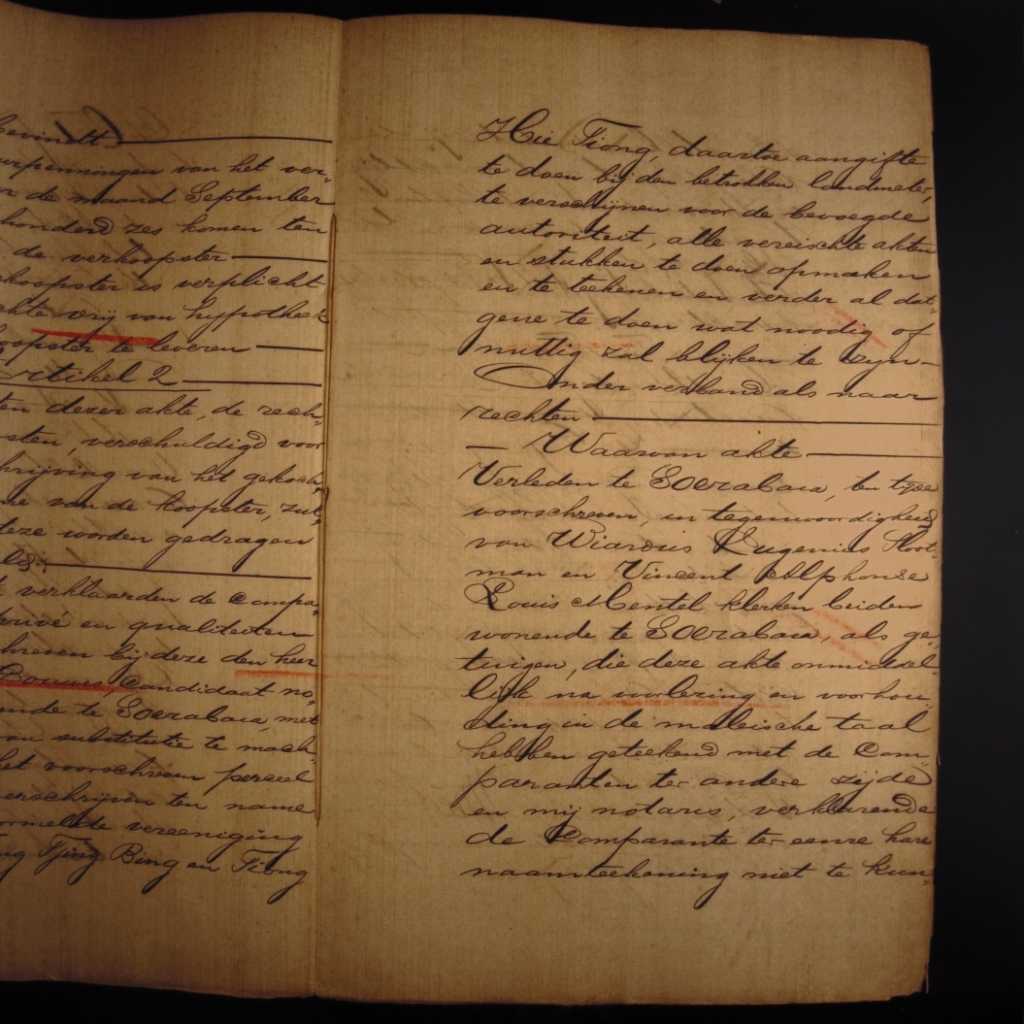 bevindt
urpenningen van het ver-
r de maand September
honderd zes komen ten
de verkoopster
rkoopster is verplicht
chte vrij van hypotheek
koopster te leveren
Artikel 2
ten dezer akte, de rech-
sten, verschuldigd voor
hrijving van het gekoch-
me van de koopster, zul-
deze worden gedragen
ld:
t verklaarden de Compa-
privé en qualiteiten
hreven bij deze den heer
Bouwes, Candidaat no-
nde te Soerabaia, met
van substitutie te mach-
het voorschreven perceel
erschrijven ten name
ormelde vereeniging
ng Tjing Bing en Tiong
Hie Tiong, daartoe aangifte
te doen bij den betrokken landmeter,
te verschijnen voor de bevoegde
autoriteit, alle vereischte akten
en stukken te doen opmaken
en te teekenen en verder al dat
gene te doen wat noodig of
nuttig zal blijken te zijn-
Onder verband als naar
rechten
- Waarvan akte
Verleden te Soerabaia, ten tyde
voorschreven, in tegenwoordigheid
van Wiardus Eugenius Hoot-
man en Vincent Allphonse
Louis Mentel klerken beiden
wonende te Soerabaia, als ge-
tuigen, die deze akte onmiddel-
lijk na voorlezing en voorhou-
ding in de maleische taal
hebben geteekend met de Com-
paranten ter andere zijde
en mij notaris, verklarende
de Comparante ter eenre hare
naamteekening niet te kun-